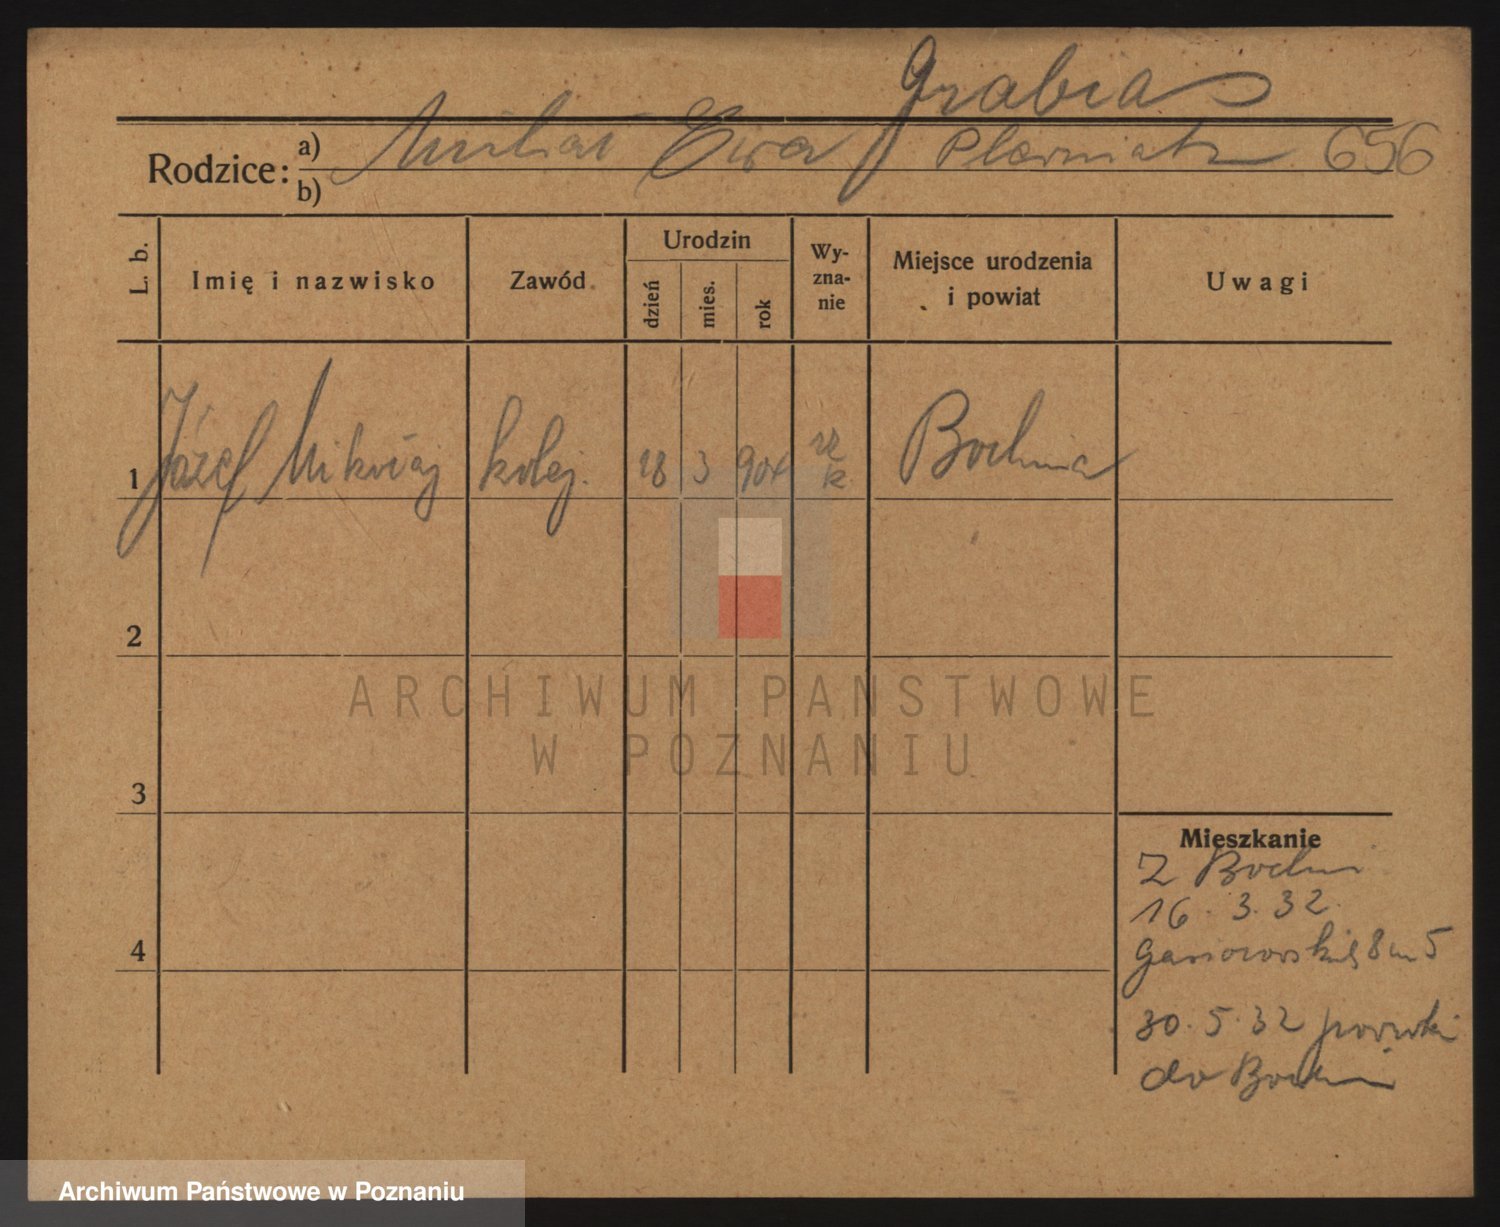 Grabias
Rodzice: a) Michał Ewa 656
b)
L. b.
Imię i nazwisko
Zawód
Urodzin
dzień
mies.
rok
Wy-
zna-
nie
Miejsce urodzenia
i powiat
Uwagi
1 Józef Mikołaj kolej. 18 3 904 rz k. Bochnia
2
3
4
Mieszkanie
Z Bochni
16. 3. 32.
Gąsiorowskich 8 m 5
30. 5. 32
do Bochni
ARCHIWUM PAŃSTWOWE
W POZNANIU
Archiwum Państwowe w Poznaniu